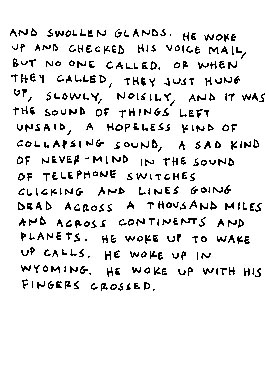 AND SWOLLEN GLANDS. HE WOKE
UP AND CHECKED HIS VOICE MAIL,
BUT NO ONE CALLED. OR WHEN
THEY CALLED, THEY JUST HUNG
UP, SLOWLY, NOISILY, AND IT WAS
THE SOUND OF THINGS LEFT
UNSAID, A HOPELESS KIND OF
COLLAPSING SOUND, A SAD KIND
OF NEVER-MIND IN THE SOUND
OF TELEPHONE SWITCHES
CLICKING AND LINES GOING
DEAD ACROSS A THOUSAND MILES
AND ACROSS CONTINENTS AND
PLANETS. HE WOKE UP TO WAKE
UP CALLS. HE WOKE UP IN
WYOMING. HE WOKE UP WITH HIS
FINGERS CROSSED.